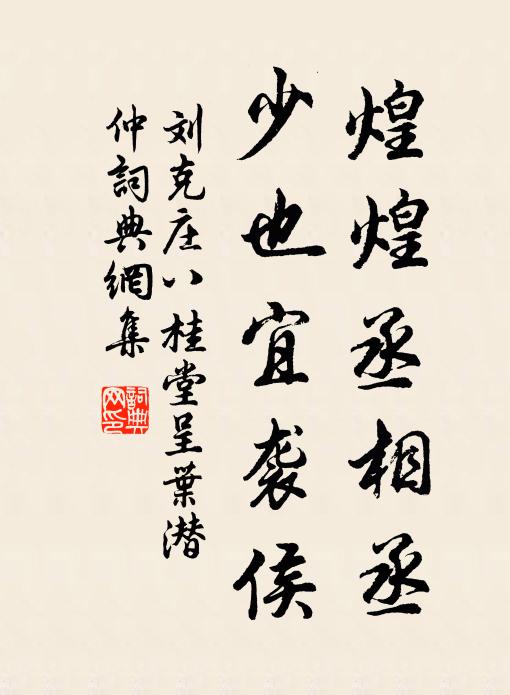 煌煌丞相丞
少也宜袭侯
刘克庄八桂堂呈葉潜
仲詞典網集
詞典
网印